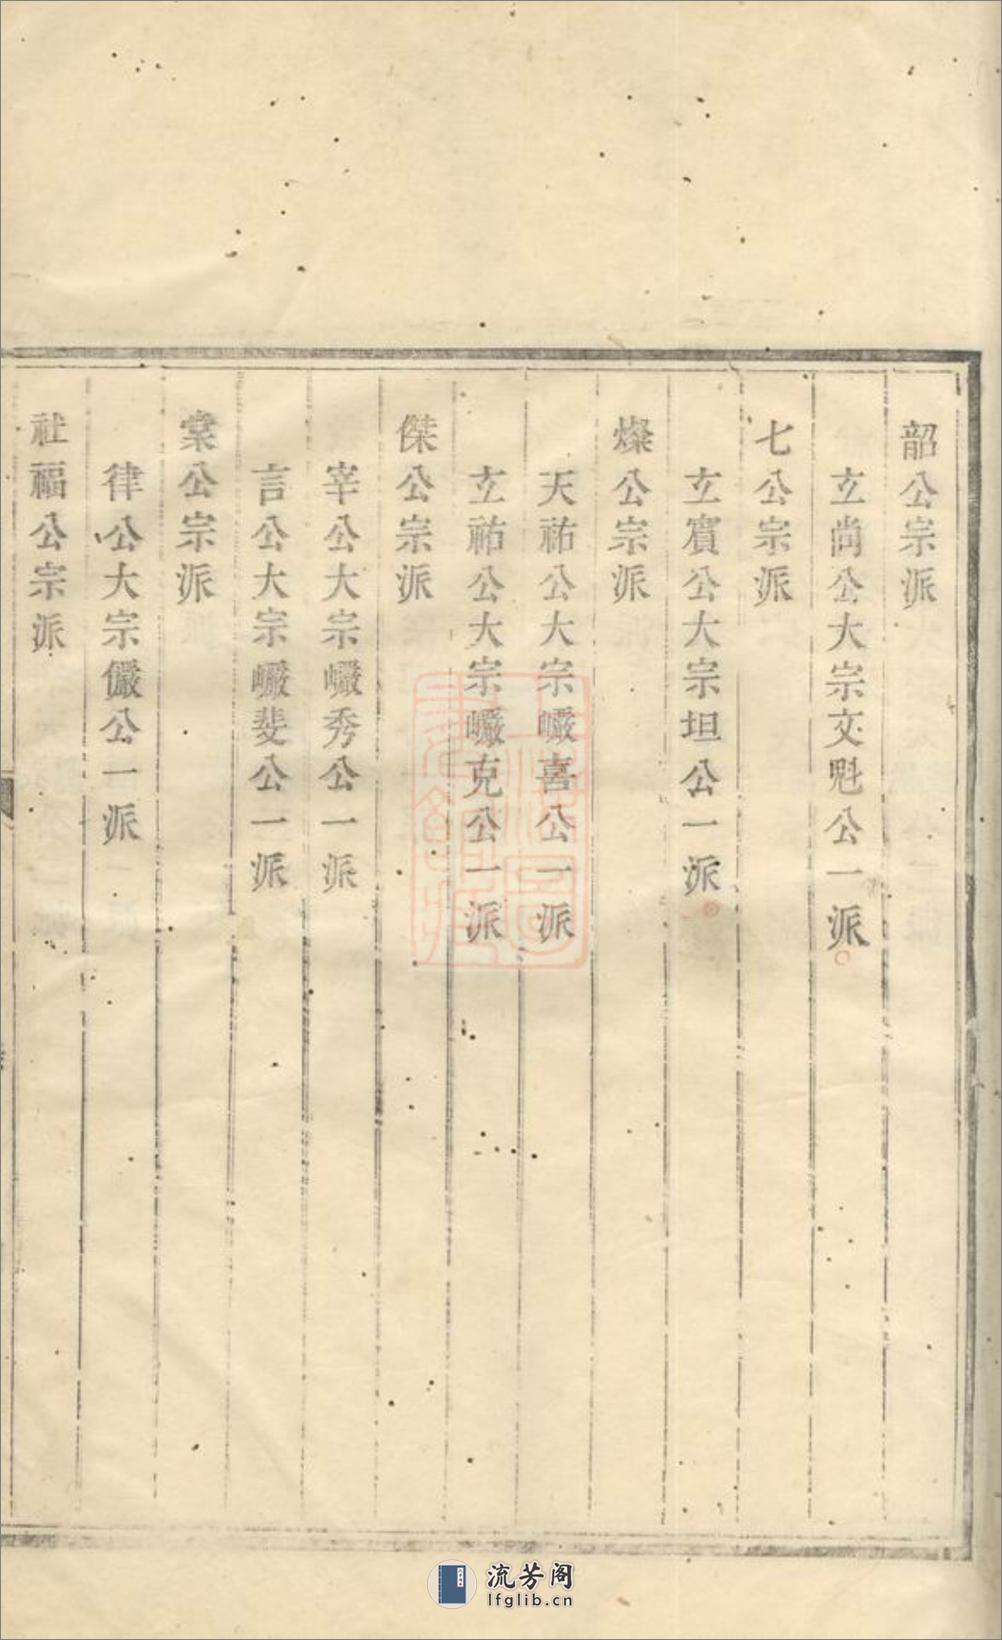 韶公宗派
玄尚公大宗文魁公一派
七公宗派
玄賓公大宗坦公一派
燦公宗派
天祐公大宗巗喜公一派
玄祐公大宗巗克公一派
傑公宗派
宰公大宗巗秀公一派
言公大宗巗斐公一派
棠公宗派
律公大宗儼公一派
社福公宗派
流芳阁
lfglib.cn